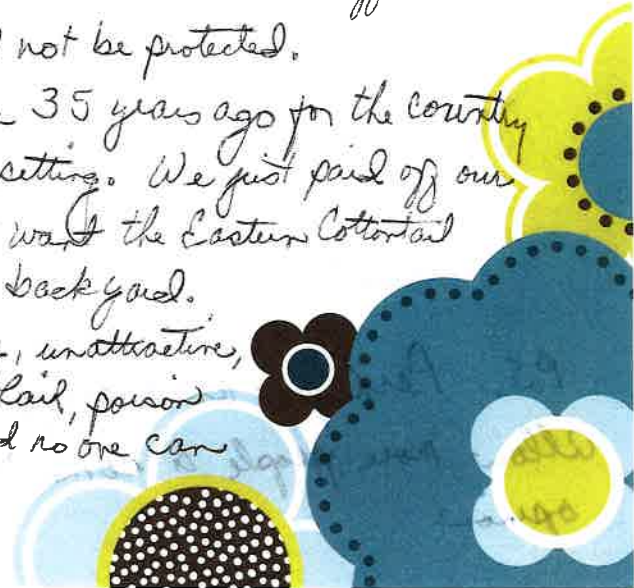 not be protected.
35 years ago for the country
setting. We just paid off our
want the Eastern Cottontail
backyard.
, unattractive,
poison
no one can